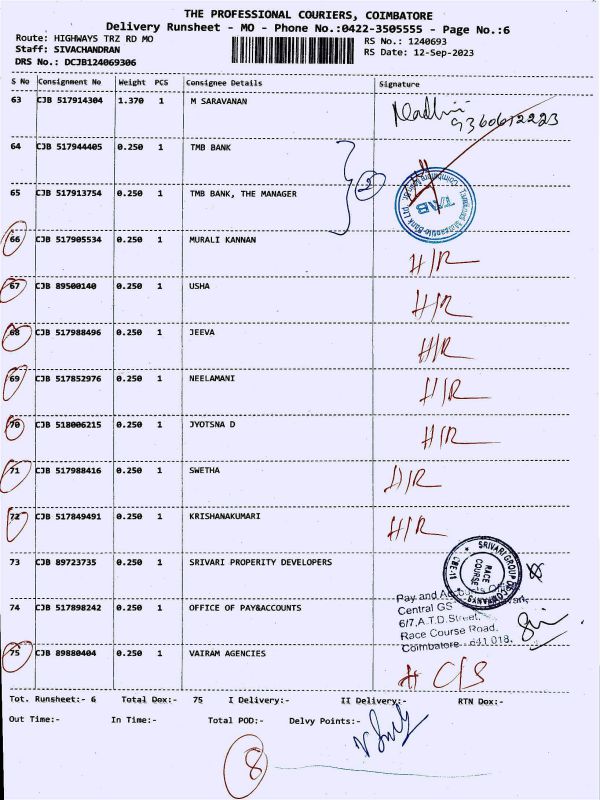 THE PROFESSIONAL COURIERS, COIMBATORE
Delivery Runsheet - MO - Phone No.:0422-3505555 - Page No.:6
Route: HIGHWAYS TRZ RD MO
RS No.: 1240693
Staff: SIVACHANDRAN
RS Date: 12-Sep-2023
DRS No.: DCJB124069306
S No Consignment No Weight PCS Consignee Details Signature
63 CJB 517914304 1.370 1 M SARAVANAN
9360612223
64 CJB 517944405 0.250 1 TMB BANK
65 CJB 517913754 0.250 1 TMB BANK, THE MANAGER
2
TMB
66 CJB 517905534 0.250 1 MURALI KANNAN H/R
67 CJB 89500140 0.250 1 USHA H/R
68 CJB 517988496 0.250 1 JEEVA H/R
69 CJB 517852976 0.250 1 NEELAMANI H/R
70 CJB 518006215 0.250 1 JYOTSNA D H/R
71 CJB 517988416 0.250 1 SWETHA H/R
72 CJB 517849491 0.250 1 KRISHANAKUMARI H/R
73 CJB 89723735 0.250 1 SRIVARI PROPERITY DEVELOPERS
SRIVARI GROUP OF COMPANYS
CBE-18
RACE COURSE
74 CJB 517898242 0.250 1 OFFICE OF PAY&ACCOUNTS
Pay and Accounts
Central GS
6/7,A.T.D.Street,
Race Course Road,
Coimbatore - 641 018.
75 CJB 89880404 0.250 1 VAIRAM AGENCIES # C/S
Tot. Runsheet:- 6 Total Dox:- 75 I Delivery:- II Delivery:- RTN Dox:-
Out Time:- In Time:- Total POD:- Delvy Points:-
8